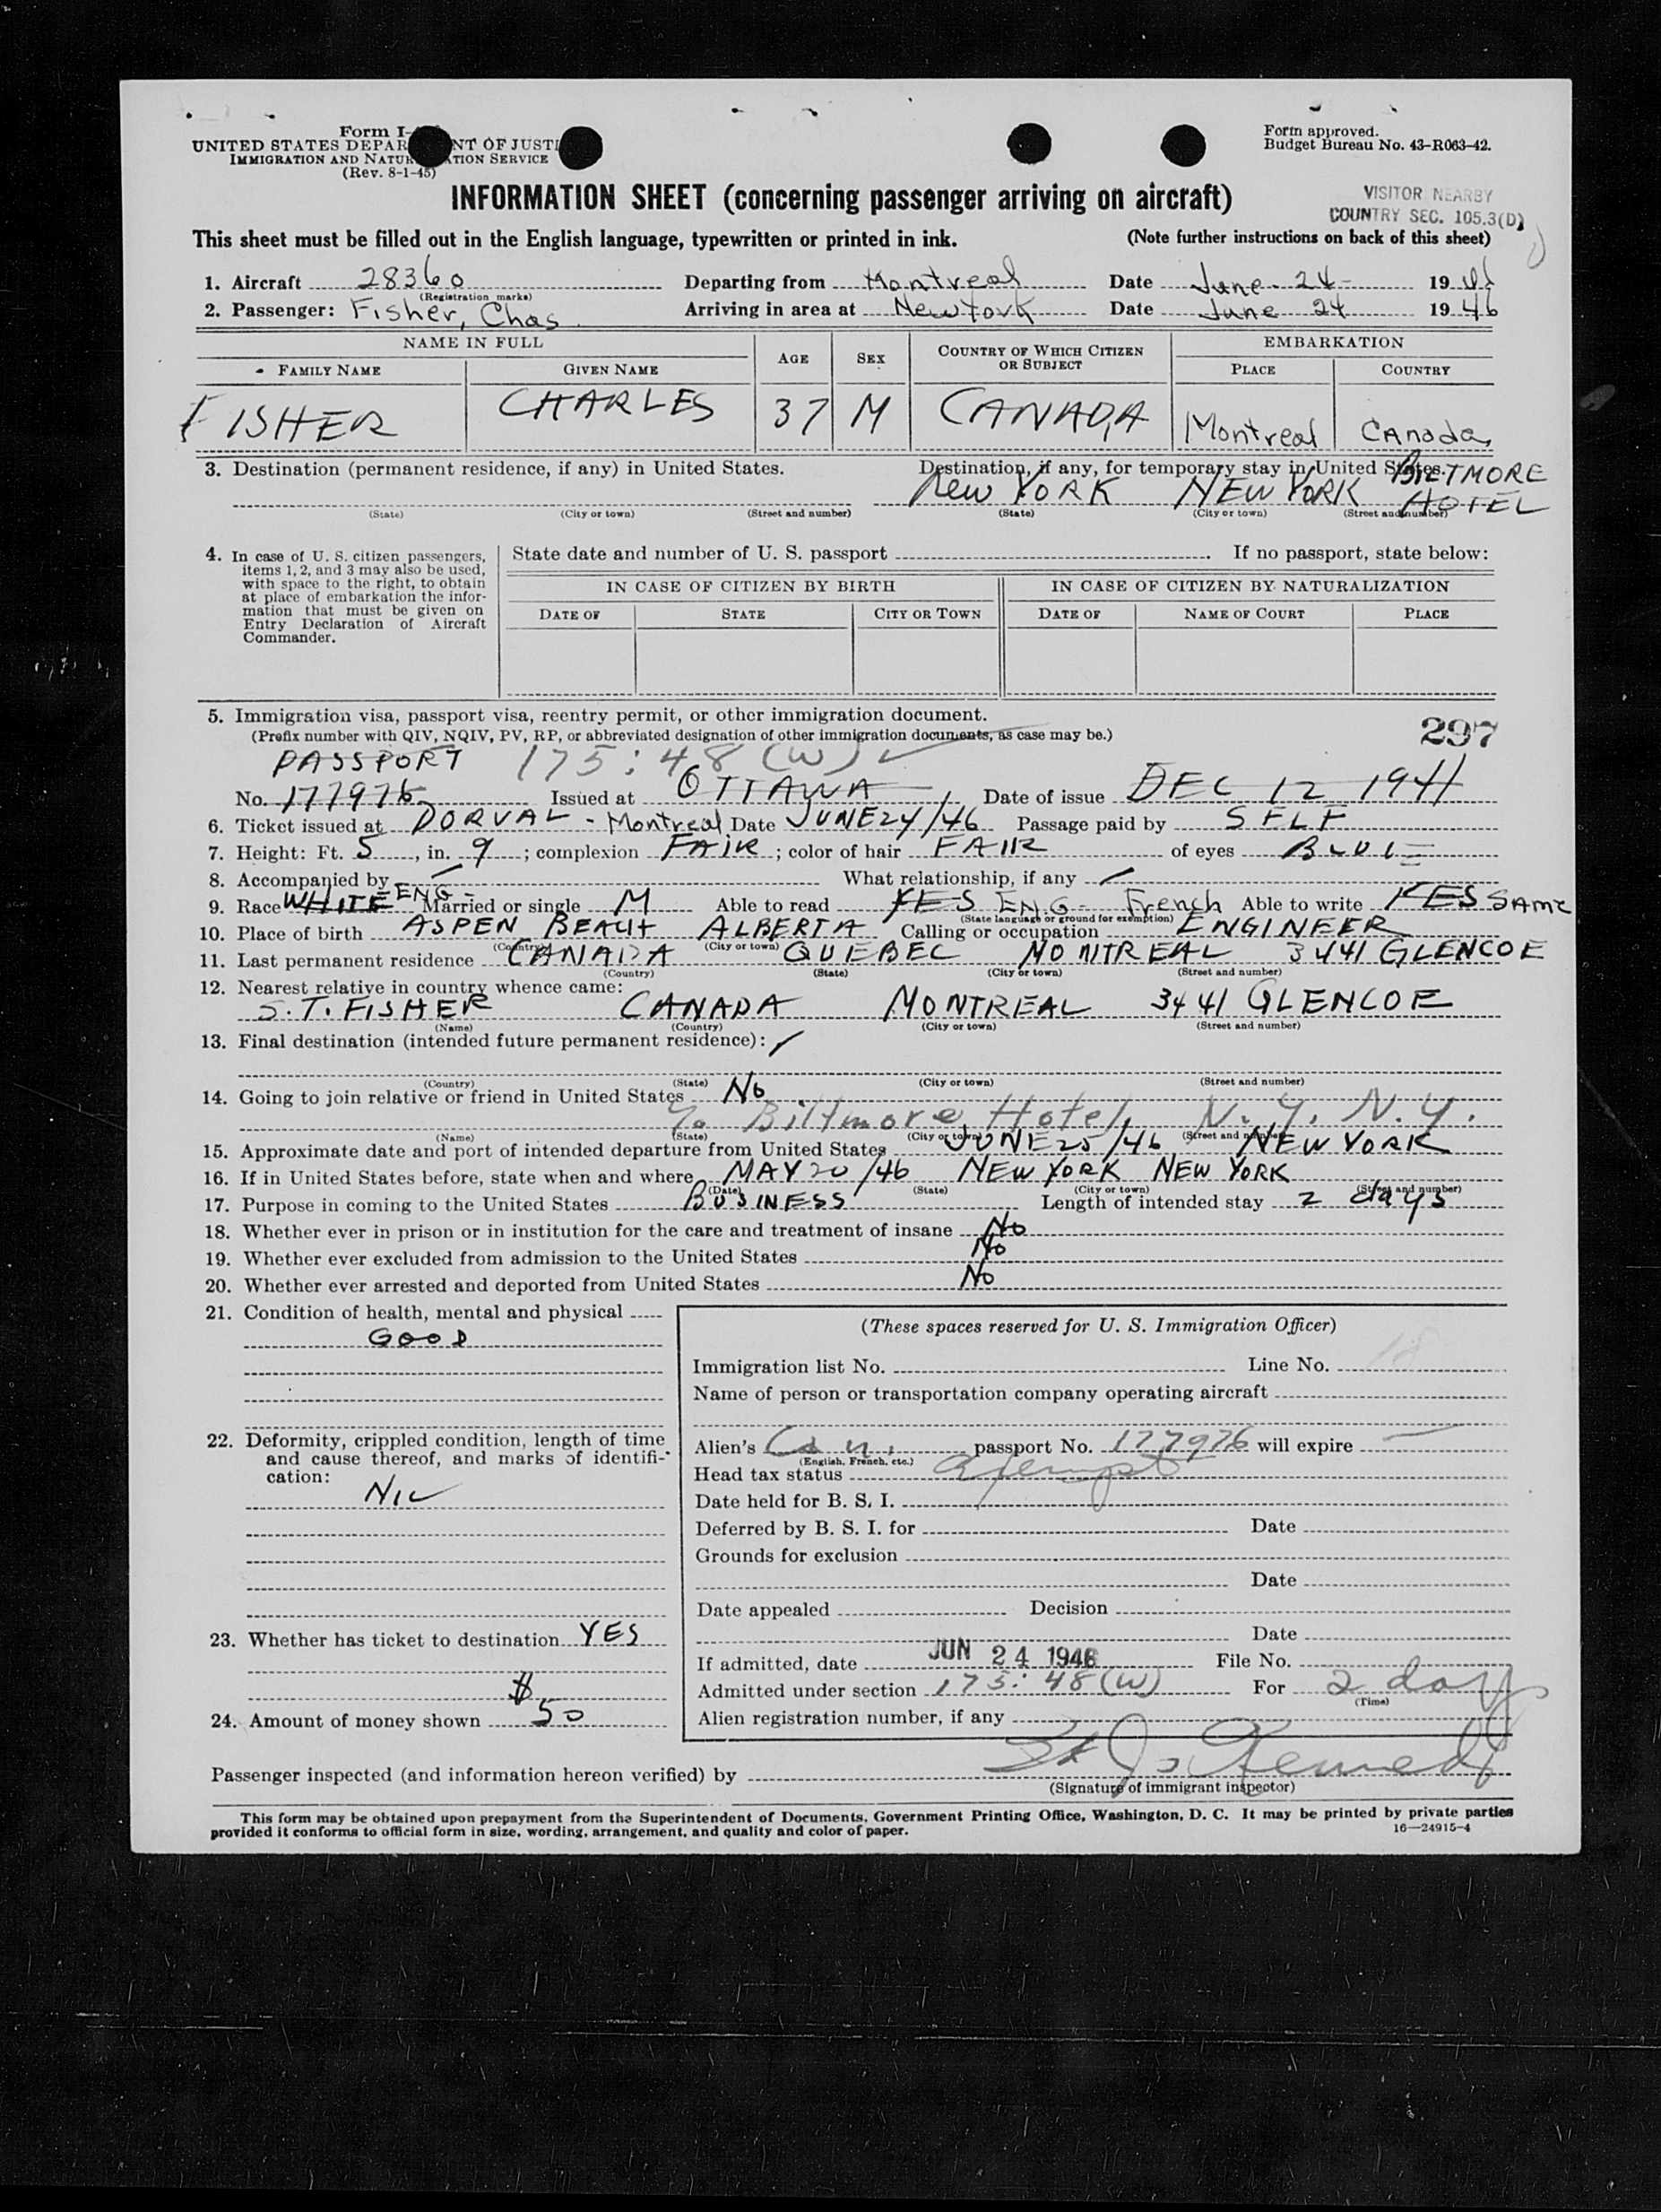 Form I-
UNITED STATES DEPAR NT OF JUSTI
IMMIGRATION AND NATUR TION SERVICE
(Rev. 8-1-45)
Form approved.
Budget Bureau No. 43-R063-42.
INFORMATION SHEET (concerning passenger arriving on aircraft)
VISITOR NEARBY
COUNTRY SEC. 105.3(D)
This sheet must be filled out in the English language, typewritten or printed in ink.
(Note further instructions on back of this sheet)
1. Aircraft 28360 Departing from Montreal Date June 24 - 19 46
(Registration marks)
2. Passenger: Fisher, Chas. Arriving in area at New York Date June 24 19 46
NAME IN FULL AGE SEX COUNTRY OF WHICH CITIZEN OR SUBJECT EMBARKATION
FAMILY NAME GIVEN NAME PLACE COUNTRY
FISHER CHARLES 37 M CANADA Montreal Canada
3. Destination (permanent residence, if any) in United States. Destination, if any, for temporary stay in United States.
New YORK NEW YORK BILTMORE HOTEL
(State) (City or town) (Street and number) (State) (City or town) (Street and number)
4. In case of U. S. citizen passengers, items 1, 2, and 3 may also be used, with space to the right, to obtain at place of embarkation the information that must be given on Entry Declaration of Aircraft Commander.
State date and number of U. S. passport . If no passport, state below:
IN CASE OF CITIZEN BY BIRTH IN CASE OF CITIZEN BY NATURALIZATION
DATE OF STATE CITY OR TOWN DATE OF NAME OF COURT PLACE
5. Immigration visa, passport visa, reentry permit, or other immigration document.
(Prefix number with QIV, NQIV, PV, RP, or abbreviated designation of other immigration documents, as case may be.)
297
PASSPORT 175:48 (W) ✓
No. 177976 Issued at OTTAWA Date of issue DEC 12 1941
6. Ticket issued at DORVAL - Montreal Date JUNE 24/46 Passage paid by SELF
7. Height: Ft. 5, in. 9; complexion FAIR; color of hair FAIR of eyes BLUE
8. Accompanied by — What relationship, if any —
9. Race WHITE ENG- Married or single M Able to read YES ENG- French Able to write YES SAME
(State language or ground for exemption)
10. Place of birth ASPEN BEACH ALBERTA Calling or occupation ENGINEER
(Country) (City or town)
11. Last permanent residence CANADA QUEBEC MONTREAL 3441 GLENCOE
(Country) (State) (City or town) (Street and number)
12. Nearest relative in country whence came:
S.T. FISHER CANADA MONTREAL 3441 GLENCOE
(Name) (Country) (City or town) (Street and number)
13. Final destination (intended future permanent residence):
(Country) (State) (City or town) (Street and number)
14. Going to join relative or friend in United States No
% Biltmore Hotel, N.Y. N.Y.
(Name) (State) (City or town) (Street and number)
15. Approximate date and port of intended departure from United States JUNE 25/46 NEW YORK
16. If in United States before, state when and where MAY 20/46 NEW YORK NEW YORK
(Date) (State) (City or town) (Street and number)
17. Purpose in coming to the United States BUSINESS Length of intended stay 2 days
18. Whether ever in prison or in institution for the care and treatment of insane No
19. Whether ever excluded from admission to the United States No
20. Whether ever arrested and deported from United States No
21. Condition of health, mental and physical
GOOD
22. Deformity, crippled condition, length of time and cause thereof, and marks of identification:
NIL
23. Whether has ticket to destination YES
24. Amount of money shown $50
(These spaces reserved for U. S. Immigration Officer)
Immigration list No. Line No. 18
Name of person or transportation company operating aircraft
Alien's Can. passport No. 177976 will expire —
(English, French, etc.)
Head tax status exempt
Date held for B. S. I.
Deferred by B. S. I. for Date
Grounds for exclusion
Date
Date appealed Decision
Date
If admitted, date JUN 24 1946 File No.
Admitted under section 175:48 (W) For 2 day
(Time)
Alien registration number, if any
Passenger inspected (and information hereon verified) by
(Signature of immigrant inspector)
This form may be obtained upon prepayment from the Superintendent of Documents, Government Printing Office, Washington, D. C. It may be printed by private parties
provided it conforms to official form in size, wording, arrangement, and quality and color of paper.
16—24915-4